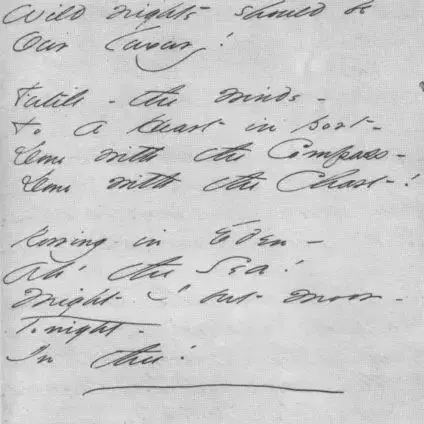 Wild nights should be
Our Luxury!
Futile - the winds -
To a Heart in port -
Done with the Compass -
Done with the Chart!
Rowing in Eden -
Ah! the Sea!
Might I but moor -
Tonight -
In thee!